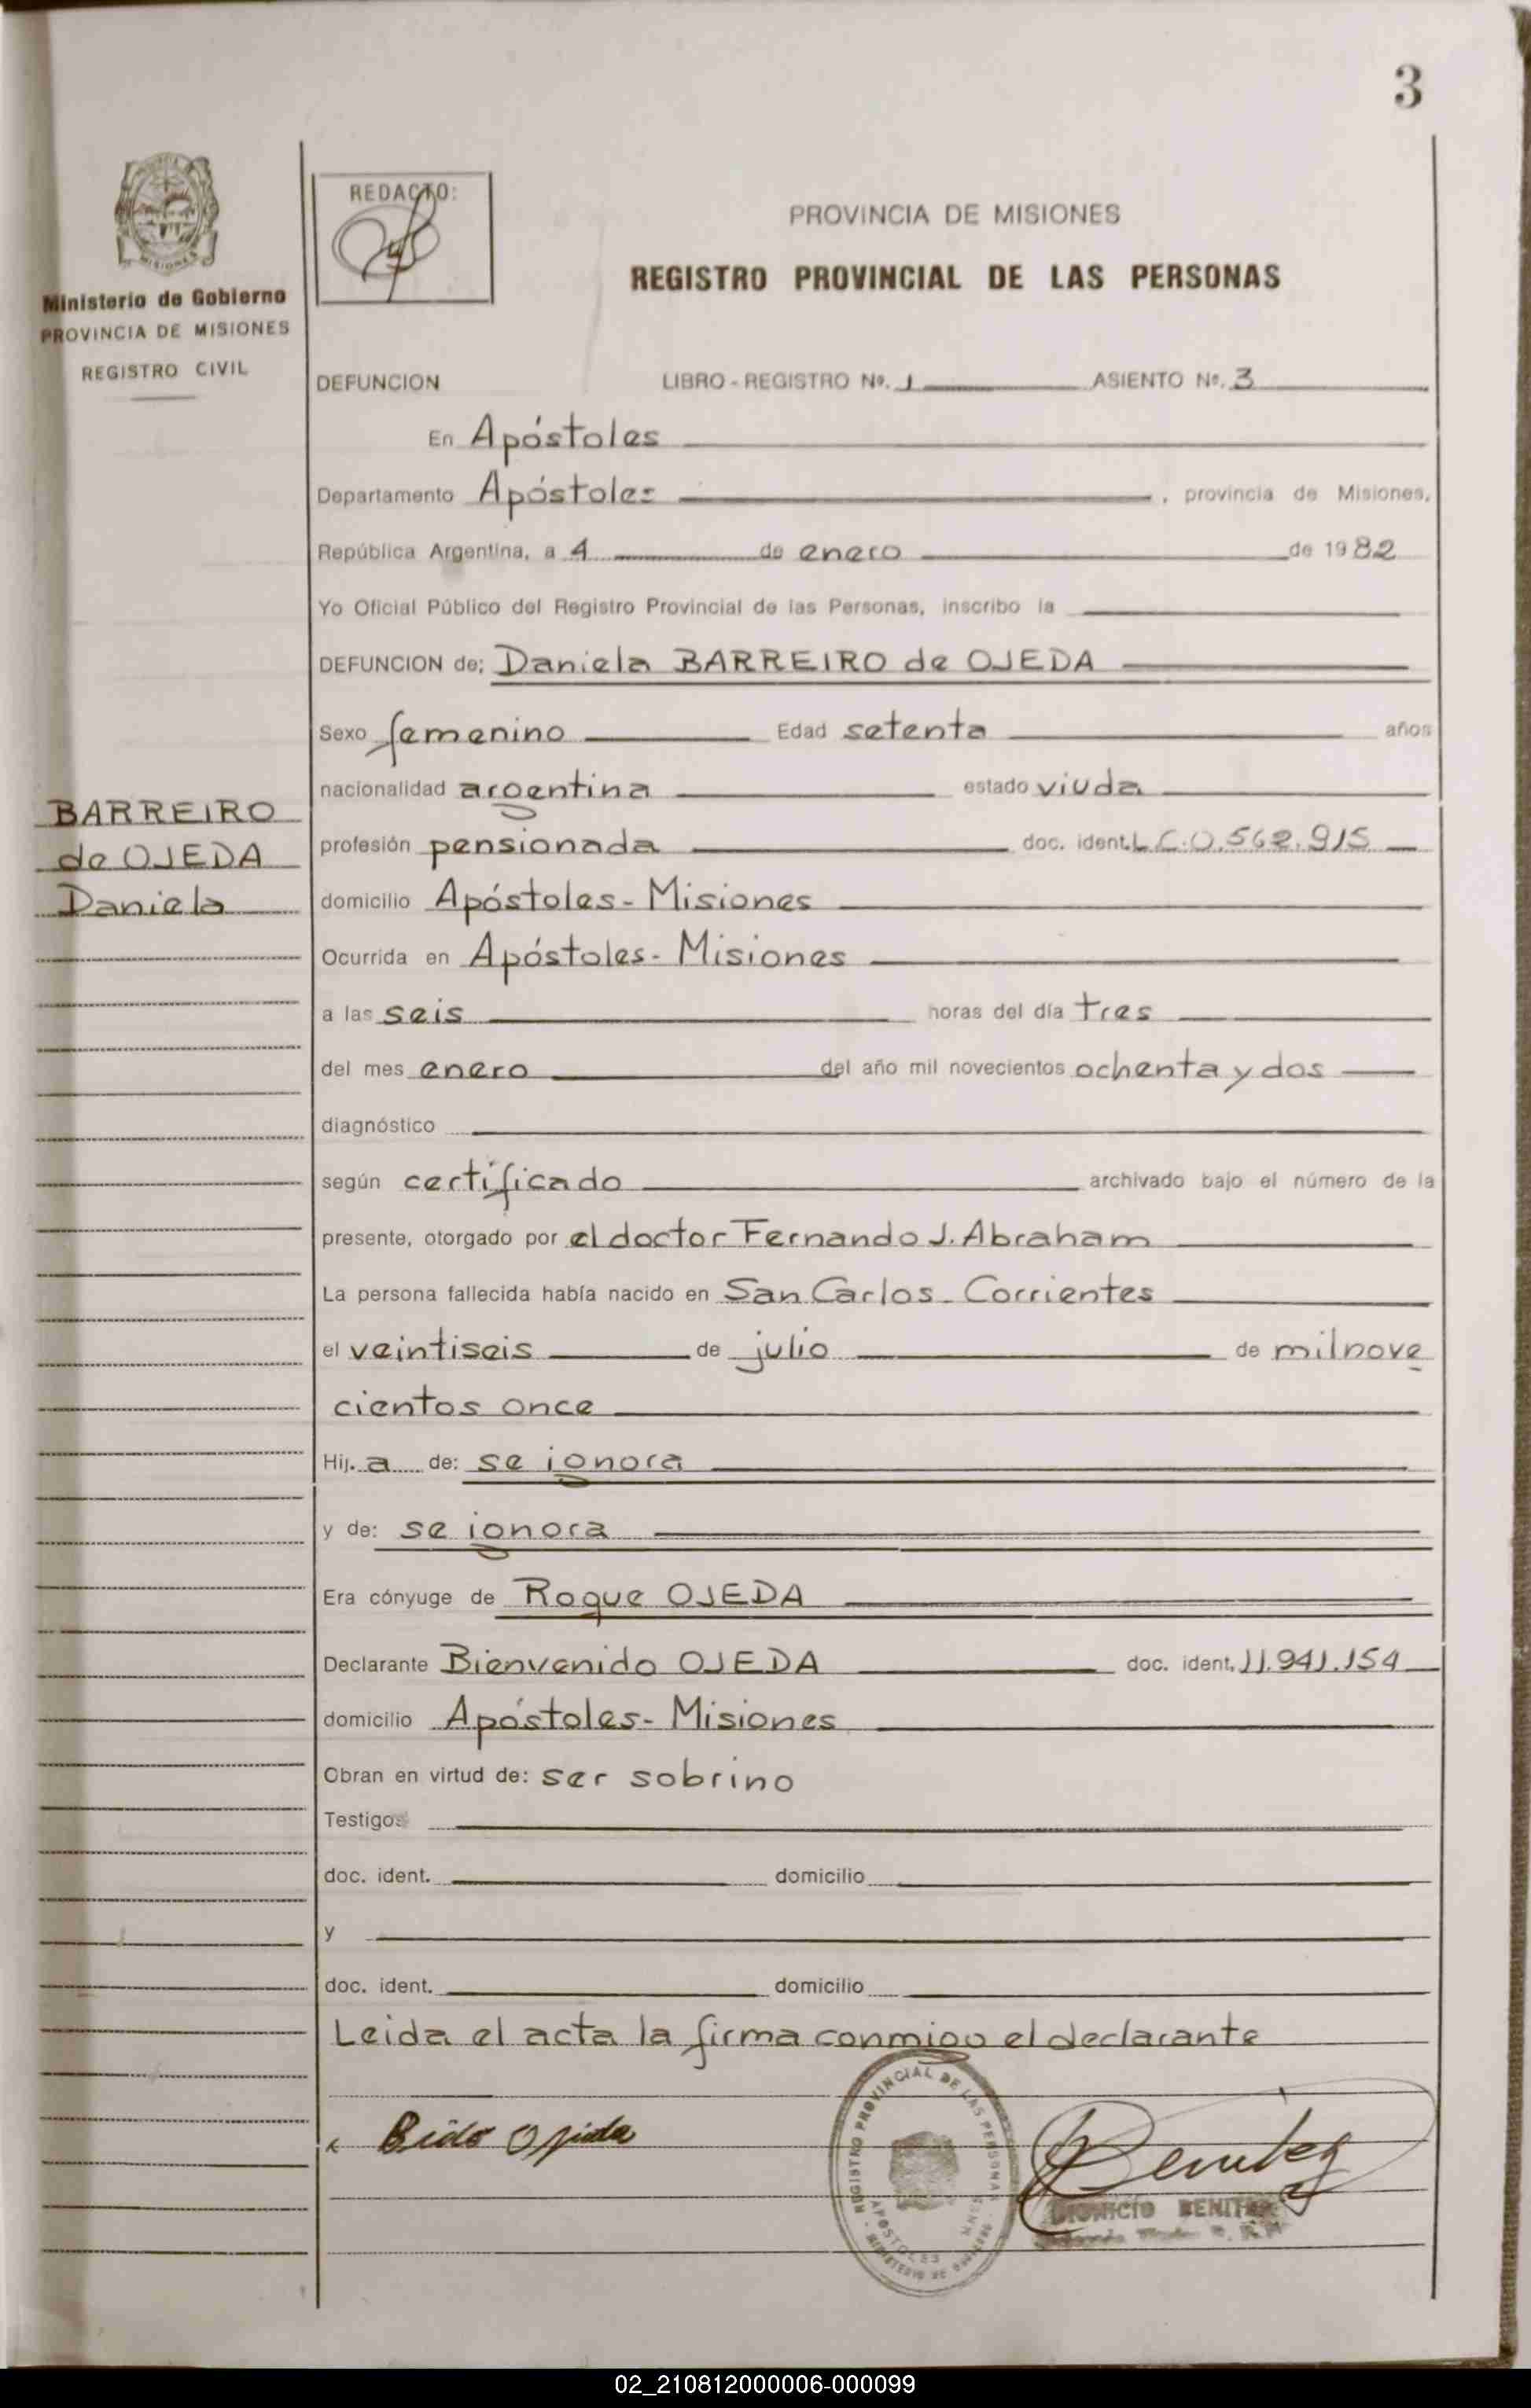 3
MISIONES
Ministerio de Gobierno
PROVINCIA DE MISIONES
REGISTRO CIVIL
REDACTO:
PROVINCIA DE MISIONES
REGISTRO PROVINCIAL DE LAS PERSONAS
DEFUNCION LIBRO - REGISTRO Nº. 1 ASIENTO Nº. 3
En Apóstoles
Departamento Apóstoles , provincia de Misiones,
República Argentina, a 4 de enero de 1982
Yo Oficial Público del Registro Provincial de las Personas, inscribo la
DEFUNCION de: Daniela BARREIRO de OJEDA
Sexo femenino Edad setenta años
nacionalidad argentina estado viuda
BARREIRO
de OJEDA
Daniela
profesión pensionada doc. ident. L.C.0.562.915
domicilio Apóstoles - Misiones
Ocurrida en Apóstoles - Misiones
a las seis horas del día tres
del mes enero del año mil novecientos ochenta y dos
diagnóstico
según certificado archivado bajo el número de la
presente, otorgado por el doctor Fernando J. Abraham
La persona fallecida había nacido en San Carlos - Corrientes
el veintiseis de julio de mil nove
cientos once
Hij. a de: se ignora
y de: se ignora
Era cónyuge de Roque OJEDA
Declarante Bienvenido OJEDA doc. ident. 11.941.154
domicilio Apóstoles - Misiones
Obran en virtud de: ser sobrino
Testigos
doc. ident. domicilio
y
doc. ident. domicilio
Leida el acta la firma conmigo el declarante
Bido Ojeda
REGISTRO PROVINCIAL DE LAS PERSONAS
APOSTOLES
Benitez
DIONICIO BENITEZ
02_210812000006-000099